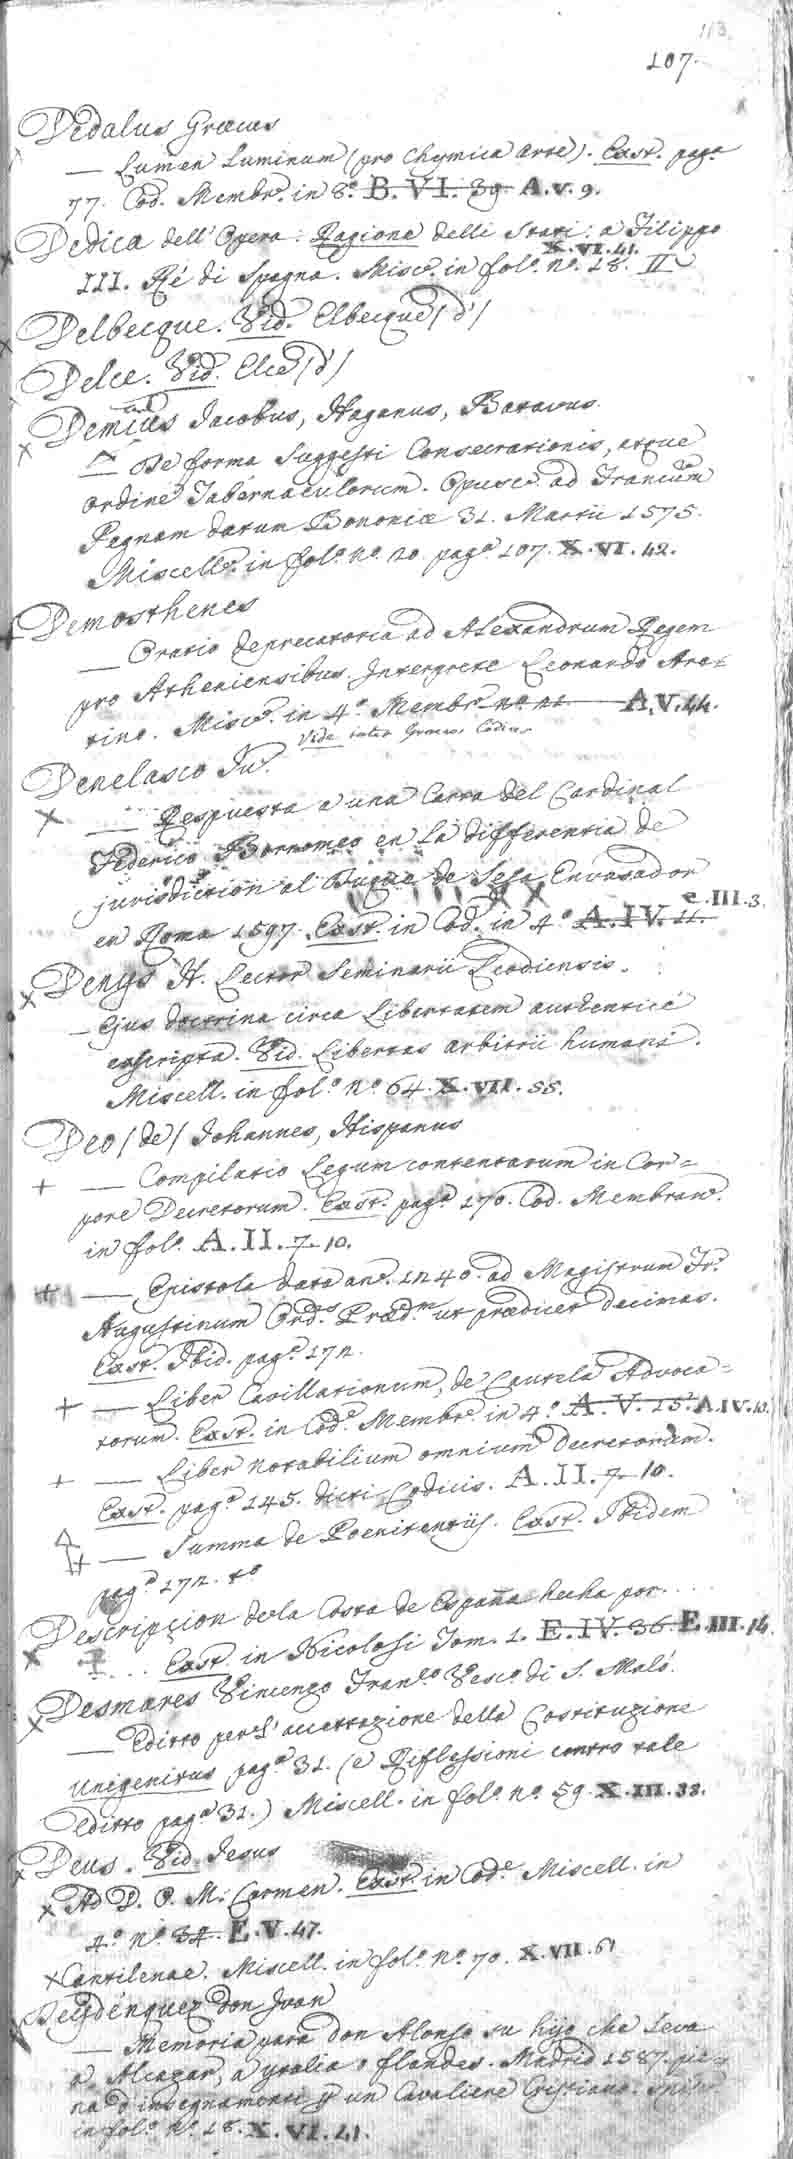 113.
107.
Dedalus Græcus
— Lumen Luminum (pro Chymica arte). Exst. pag.ª
77. Cod. Membr. in 8.º B. VI. 39 A.V.9.
Dedica dell' Opera: Ragione delli Stati: a Filippo
X.VI.41.
III. Ré di Spagna. Misc. in fol.º n.º 18. II
Delbecque. Vid. Elbecque (d')
Delce. Vid. Elce (d')
Demius Jacobus, Haganus, Batavus.
— De forma Suggesti Consecrationis, atque
ordine Tabernaculorum. Opusc. ad Franciscum
Pegnam datum Bononiæ 31. Martii 1575.
Miscell. in fol.º n.º 20. pag.ª 107. X.VI.42.
Demosthenes
— Oratio deprecatoria ad Alexandrum Regem
pro Atheniensibus. Interprete Leonardo Are=
tino. Misc. in 4.º Membr. n.º 21. A.V.44.
Vide inter Græcos Codices
Denelasco Ju.
— Respuesta a una Carta del Cardinal
Federico Borromeo en la differentia de
jurisdiction al Duque de Sesa Envasador
en Roma 1597. Exst. in Cod. in 4.º A.IV.11. e.III.3.
Denys H. Lector Seminarii Leodiensis.
— Ejus doctrina circa Libertatem authenticé
exscripta. Vid. Libertas arbitrii humani.
Miscell. in fol.º n.º 64. X.VII.55.
Deo (de) Johannes, Hispanus
— Compilatio Legum contentarum in Cor=
pore Decretorum. Exst. pag.ª 170. Cod. Membran.
in fol.º A.II.7. 10.
— Epistola data an. 1240. ad Magistrum Fr.
Augustinum Ord.s Præd.m ut prædicet decimas.
Exst. Ibid. pag.ª 172.
— Liber Cavillationum, de Cautela Advoca=
torum. Exst. in Cod.e Membr. in 4.º A.V.15. A.IV.10.
— Liber notabilium omnium Decretorum.
Exst. pag.ª 145. dicti Codicis. A.II.7. 10.
— Summa de Poenitentiis. Exst. Ibidem
pag.ª 172. t.º
Descripçion de la Costa de España hecha por....
... Exst. in Nicolosi Tom. 1. E.IV.36. E.III.14.
Desmares Vincenzo Fran.co Vesc.º di S. Maló.
— Editto per l'accettazione della Costituzione
Unigenitus pag.ª 31. (e Riflessioni contro tale
editto pag.ª 31.) Miscell. in fol.º n.º 59. X.III.38.
Deus. Vid. Jesus
Ad D. O. M. Carmen. Exst. in Cod.e Miscell. in
4.º n.º 34. E.V.47.
Cantilenae. Miscell. in fol.º n.º 70. X.VII.61
don Juan
— Memoria para don Alonso su hijo che leva
a Alcazar, a ytalia o flandes. Madrid 1587. pie=
na d'insegnamenti p un Cavaliere Cristiano.
in fol.º n.º 18. X.VI.41.